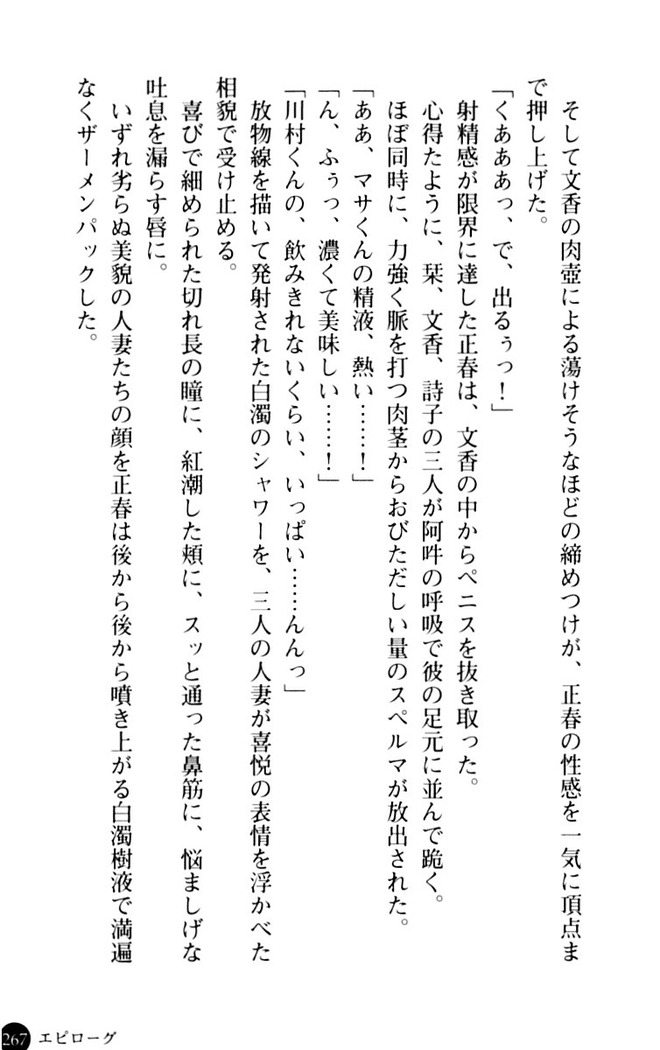 そして文香の肉壺による蕩けそうなほどの締めつけが、正春の性感を一気に頂点ま
で押し上げた。
「くあああっ、で、出るぅっ！」
射精感が限界に達した正春は、文香の中からペニスを抜き取った。
心得たように、栞、文香、詩子の三人が阿吽の呼吸で彼の足元に並んで跪く。
ほぼ同時に、力強く脈を打つ肉茎からおびただしい量のスペルマが放出された。
「ああ、マサくんの精液、熱い……！」
「ん、ふぅっ、濃くて美味しい……！」
「川村くんの、飲みきれないくらい、いっぱい……んんっ」
放物線を描いて発射された白濁のシャワーを、三人の人妻が喜悦の表情を浮かべた
相貌で受け止める。
喜びで細められた切れ長の瞳に、紅潮した頬に、スッと通った鼻筋に、悩ましげな
吐息を漏らす唇に。
いずれ劣らぬ美貌の人妻たちの顔を正春は後から後から噴き上がる白濁樹液で満遍
なくザーメンパックした。
267 エピローグ